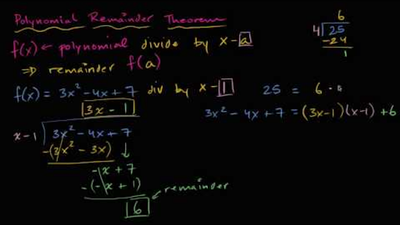 Polynomial Remainder Theorem
f(x) ← polynomial divide by x-a
⇒ remainder f(a)
f(x) = 3x² - 4x + 7 div by x - 1
3x - 1
x - 1 3x² - 4x + 7
-(3x² - 3x)
-x + 7
-(-x + 1)
6 remainder
6
4 25
-24
1
25 = 6 ·
3x² - 4x + 7 = (3x-1)(x-1) + 6